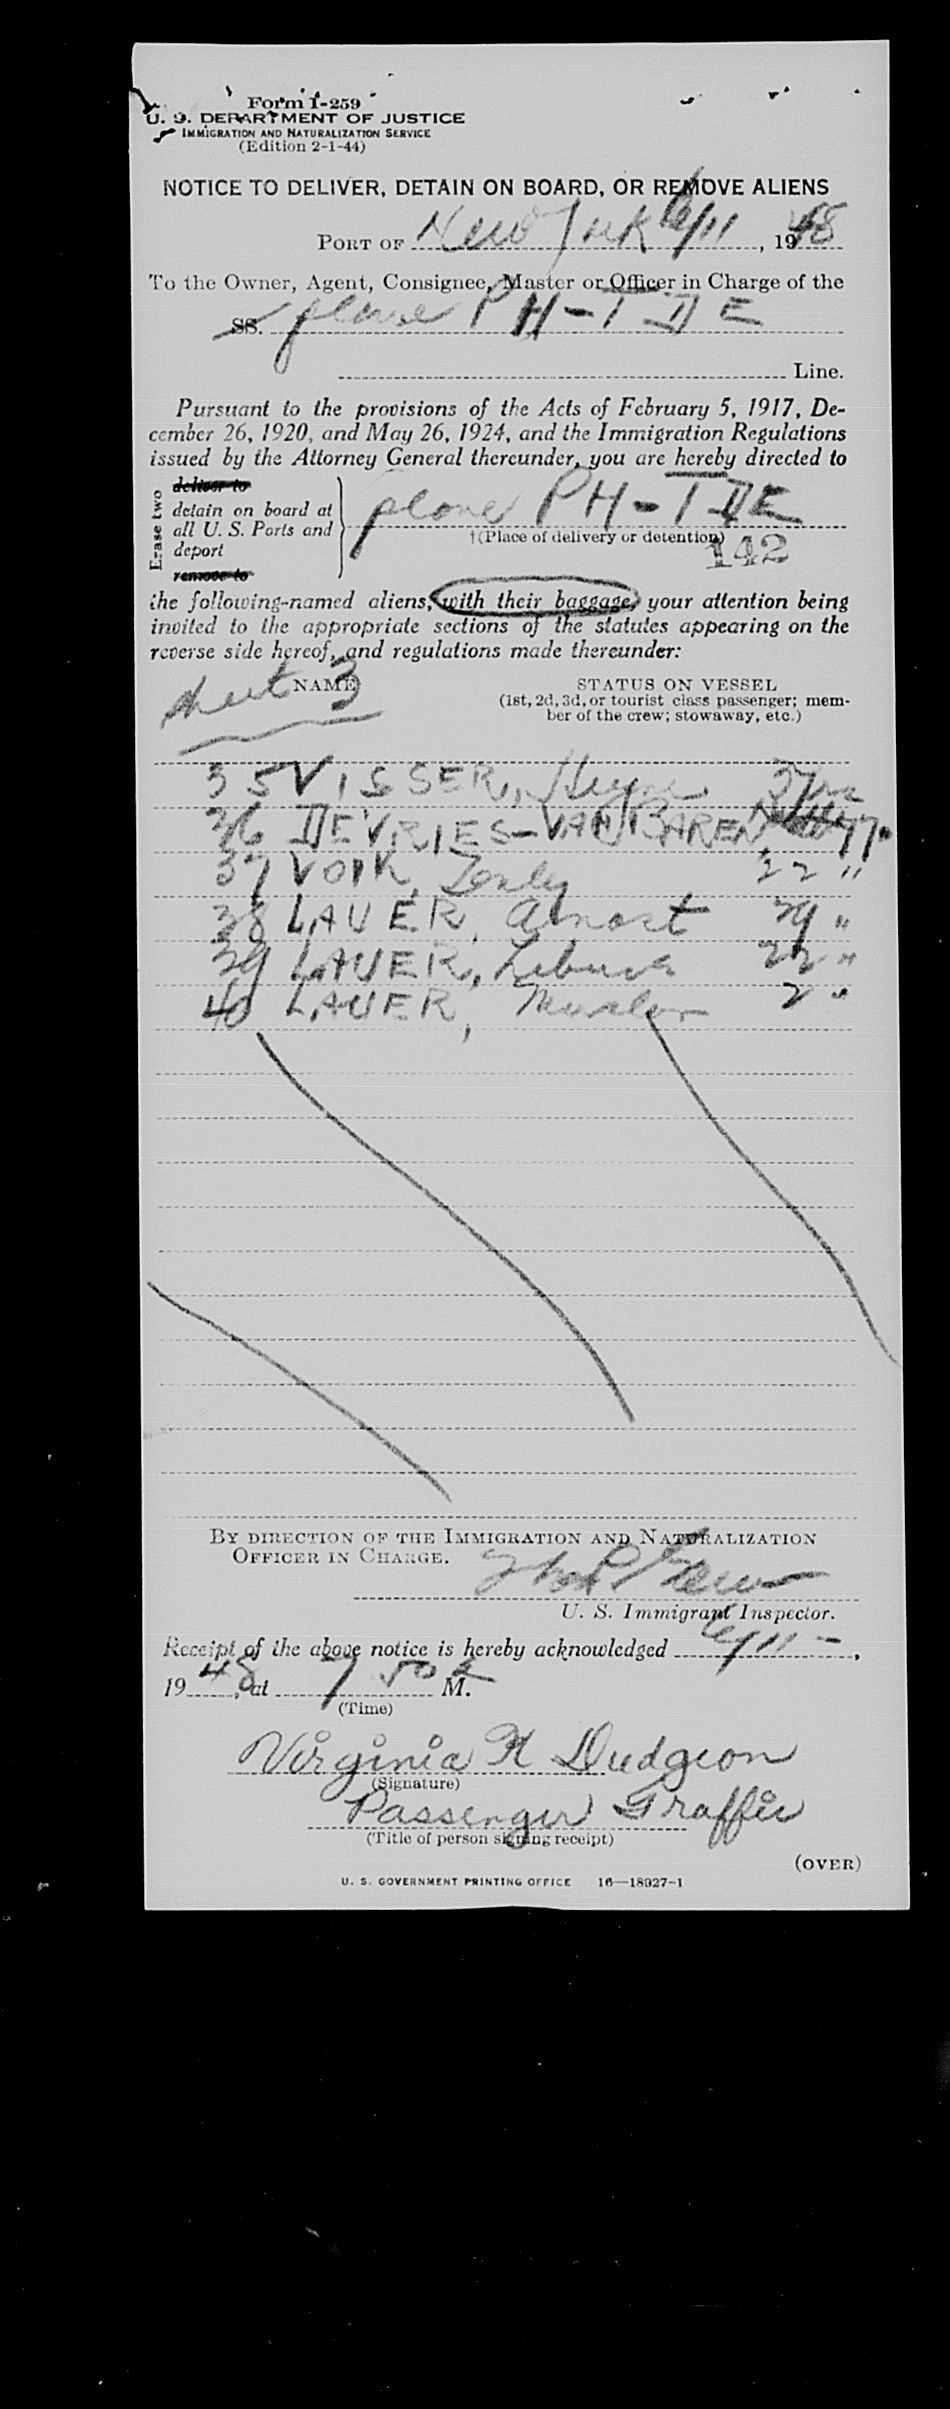 Form I-259
U. S. DEPARTMENT OF JUSTICE
IMMIGRATION AND NATURALIZATION SERVICE
(Edition 2-1-44)
NOTICE TO DELIVER, DETAIN ON BOARD, OR REMOVE ALIENS
PORT OF New York 6/11, 1948
To the Owner, Agent, Consignee, Master or Officer in Charge of the
SS. plane PH-TDE
Line.
Pursuant to the provisions of the Acts of February 5, 1917, De-
cember 26, 1920, and May 26, 1924, and the Immigration Regulations
issued by the Attorney General thereunder, you are hereby directed to
Erase two
deliver to
detain on board at
all U. S. Ports and
deport
remove to
plane PH-TDE
†(Place of delivery or detention)
142
the following-named aliens, with their baggage, your attention being
invited to the appropriate sections of the statutes appearing on the
reverse side hereof, and regulations made thereunder:
sheet 3
NAME
STATUS ON VESSEL
(1st, 2d, 3d, or tourist class passenger; mem-
ber of the crew; stowaway, etc.)
35 VISSER, 37
36 DEVRIES-VAN BAREN, 77 "
37 VOIK, 22 "
38 LAUER, 29 "
39 LAUER, Libusa 22 "
40 LAUER, 2 "
BY DIRECTION OF THE IMMIGRATION AND NATURALIZATION
OFFICER IN CHARGE.
U. S. Immigrant Inspector.
Receipt of the above notice is hereby acknowledged 6/11 -,
1948, at 7 50 a M.
(Time)
Virginia H Dudgeon
(Signature)
Passenger Traffic
(Title of person signing receipt)
(OVER)
U. S. GOVERNMENT PRINTING OFFICE 16—18927-1